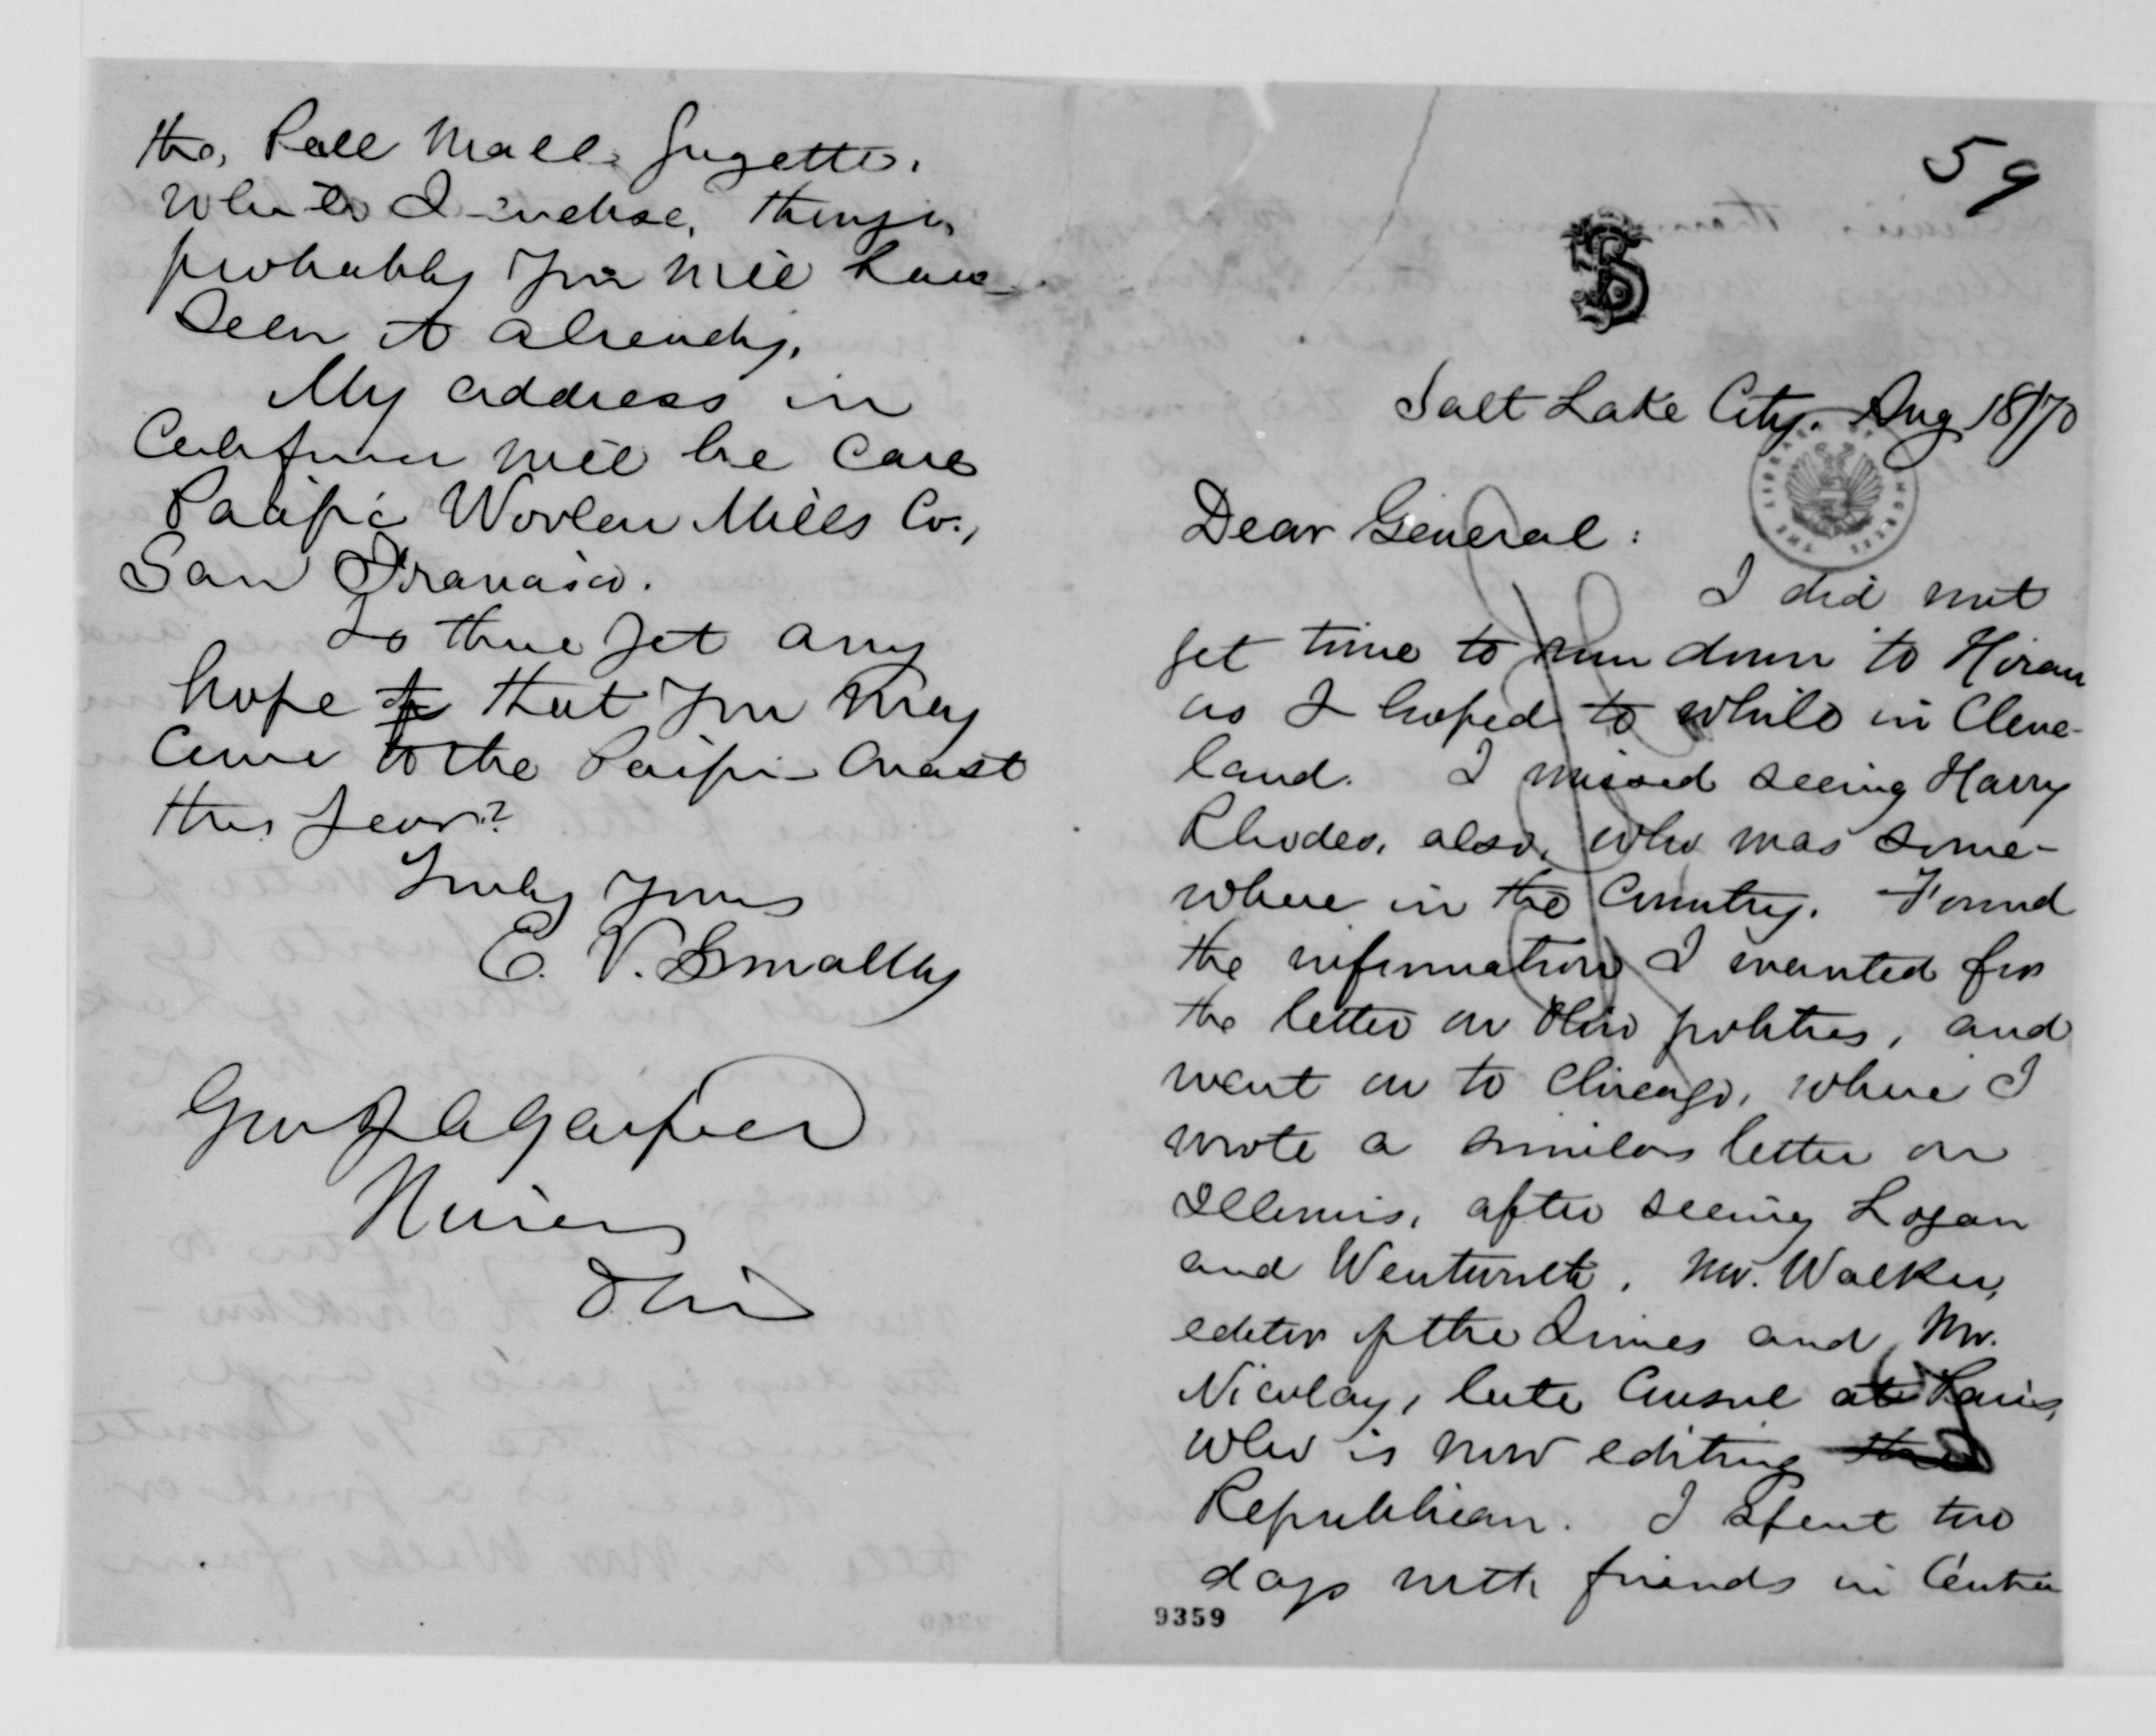 the, Pall Mall Gazette,
which I enclose, though
probably you will have
seen it already.
My address in
California will be care
Pacific Woolen Mills Co.,
San Francisco.
Is there yet any
hope that you may
come to the Pacific Coast
this year?
Truly Yours
E. V. Smalley
Gen J A Garfield
Hiram
Ohio
59
Salt Lake City. Aug 18/70
Dear General:
I did not
get time to run down to Hiram
as I hoped to while in Cleve-
land. I missed seeing Harry
Rhodes, also, who was some-
where in the Country. Found
the information I wanted for
the letter on Ohio politics, and
went on to Chicago, where I
wrote a similar letter on
Illinois, after seeing Logan
and Wentworth, Mr. Walker,
editor of the Times and Mr.
Nicolay, late Consul at Paris,
who is now editing the
Republican. I spent two
days with friends in Central
9359